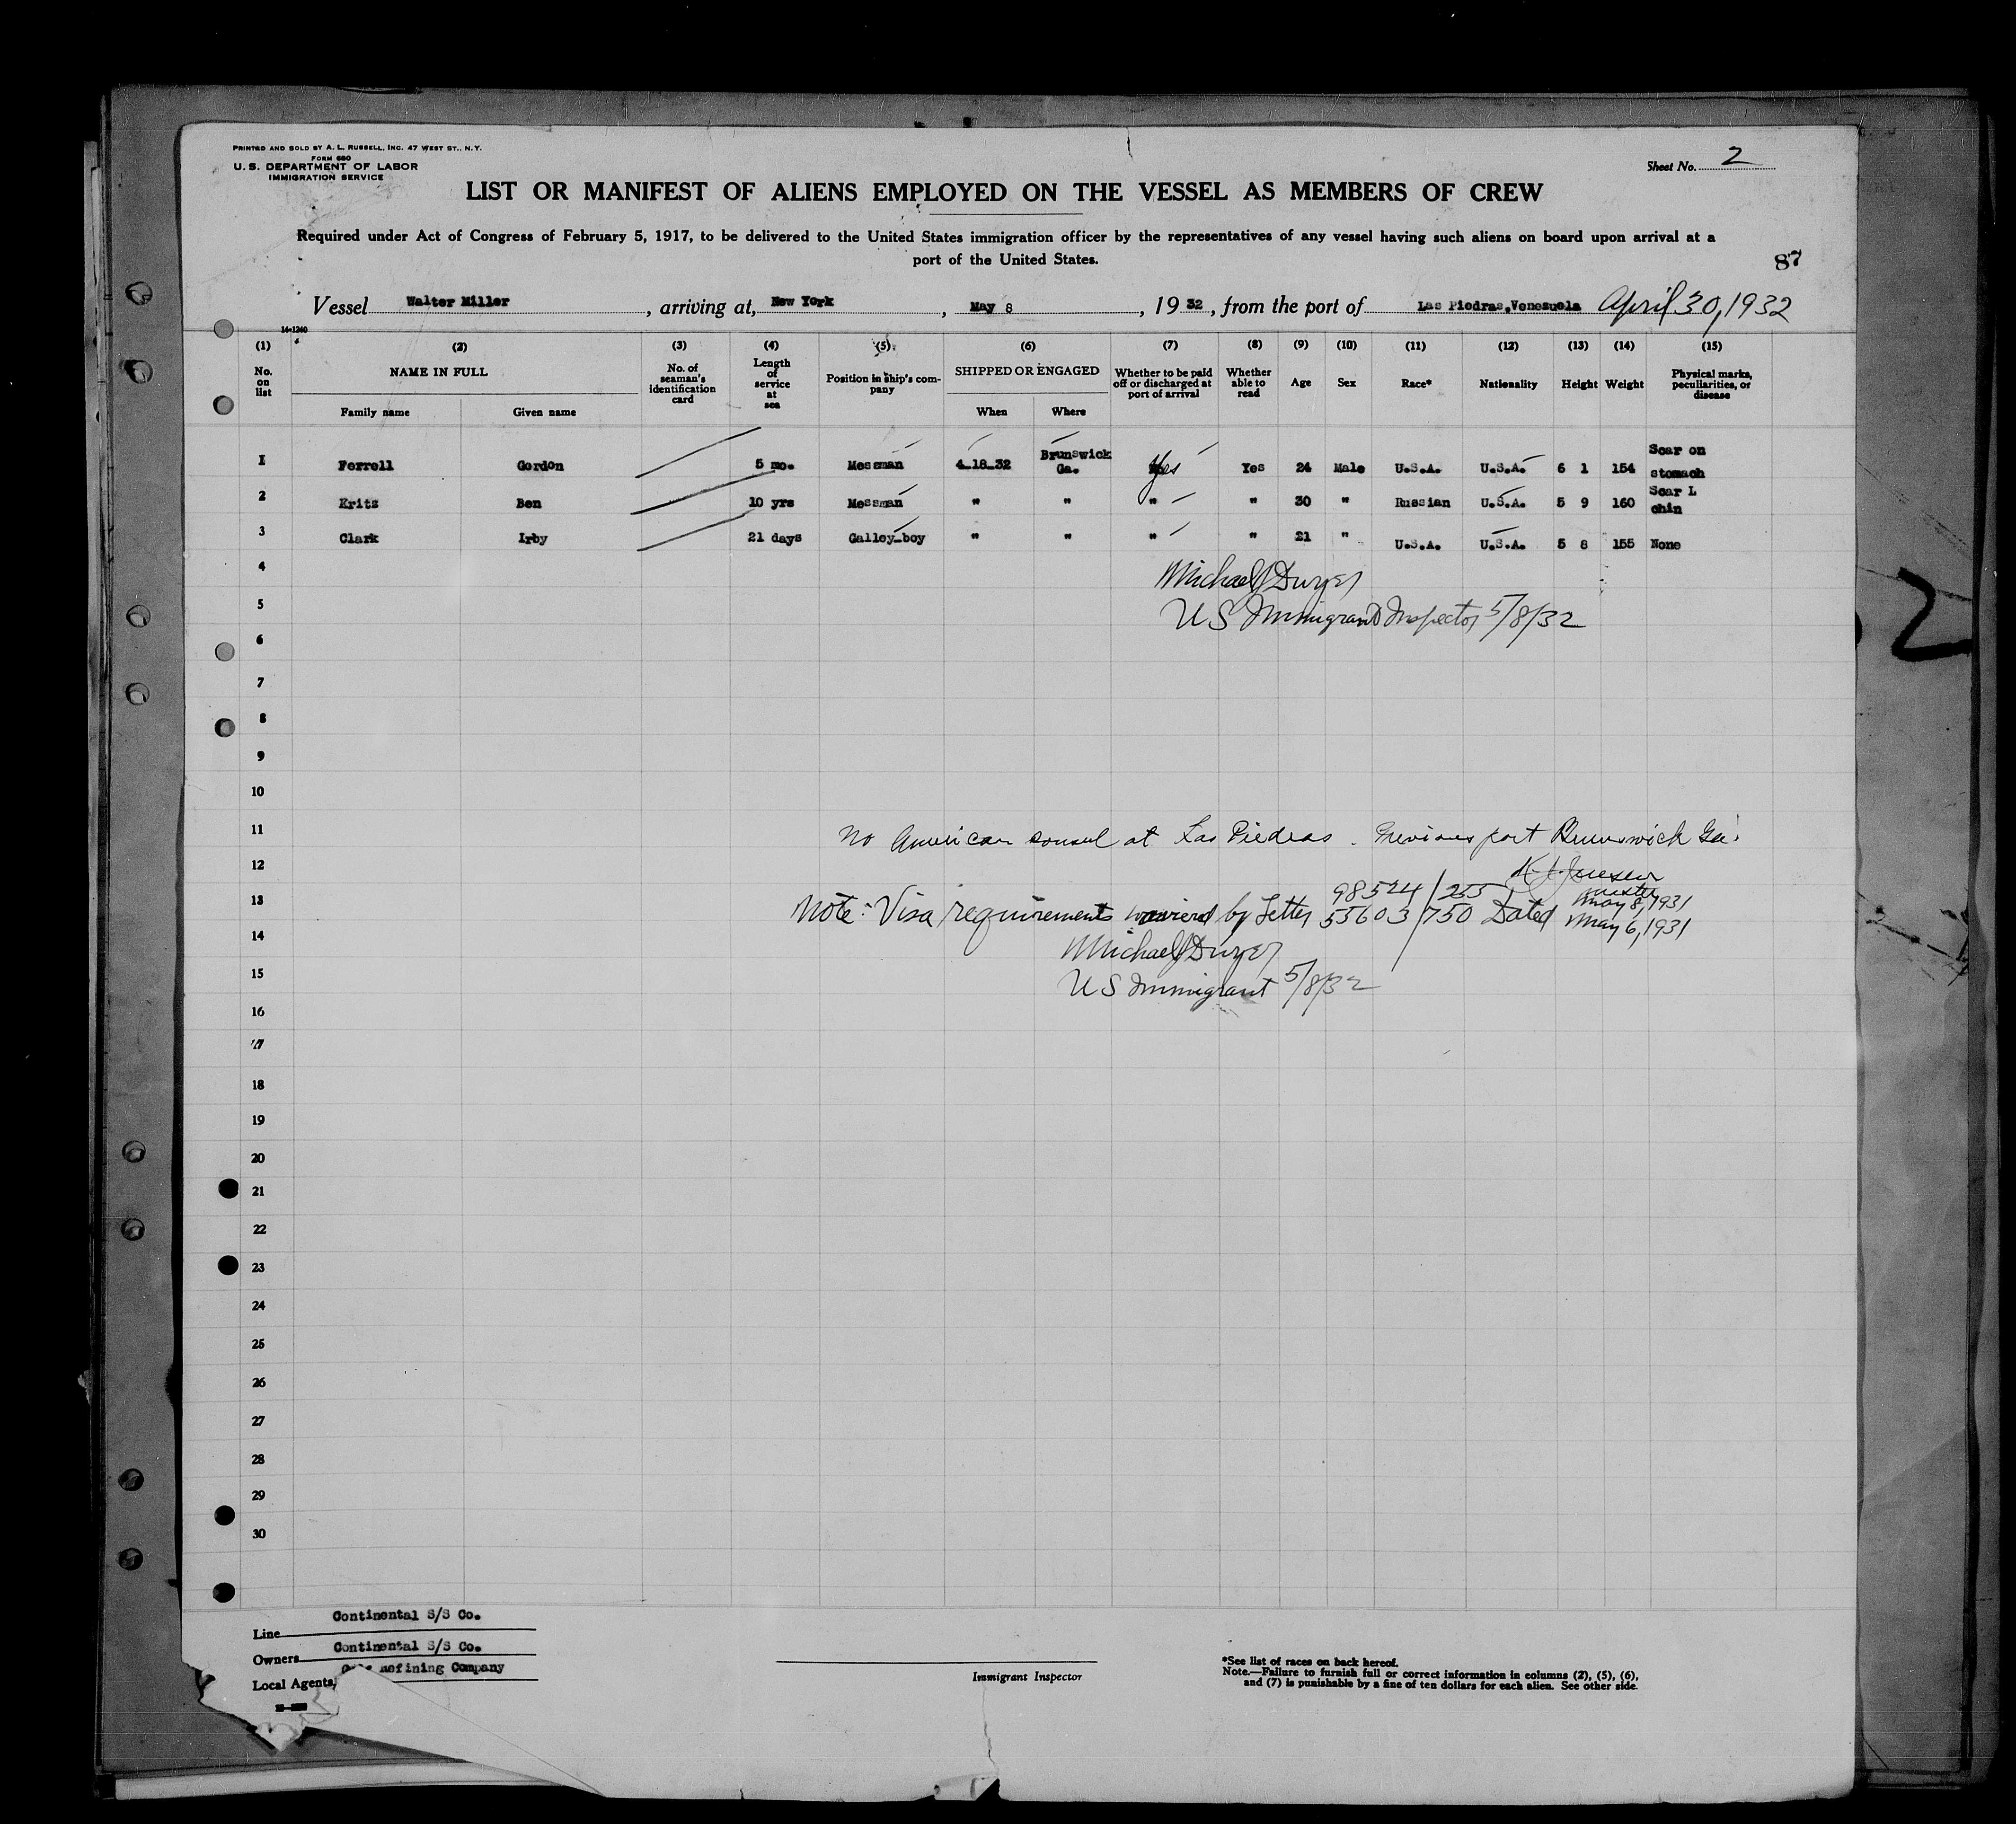 PRINTED AND SOLD BY A. L. RUSSELL, INC. 47 WEST ST., N.Y.
FORM 680
U. S. DEPARTMENT OF LABOR
IMMIGRATION SERVICE
Sheet No. 2
LIST OR MANIFEST OF ALIENS EMPLOYED ON THE VESSEL AS MEMBERS OF CREW
Required under Act of Congress of February 5, 1917, to be delivered to the United States immigration officer by the representatives of any vessel having such aliens on board upon arrival at a
port of the United States.
87
Vessel Walter Miller, arriving at, New York, May 8, 1932, from the port of Las Piedras, Venezuela April 30, 1932
14-1240
(1) (2) (3) (4) (5) (6) (7) (8) (9) (10) (11) (12) (13) (14) (15)
No. on list NAME IN FULL No. of seaman's identification card Length of service at sea Position in ship's company SHIPPED OR ENGAGED Whether to be paid off or discharged at port of arrival Whether able to read Age Sex Race* Nationality Height Weight Physical marks, peculiarities, or disease
Family name Given name When Where
1 Ferrell Gordon 5 mo. Messman 4-18-32 Brunswick Ga. Yes Yes 24 Male U.S.A. U.S.A. 6 1 154 Scar on stomach
2 Kritz Ben 10 yrs Messman " " " " 30 " Russian U.S.A. 5 9 160 Scar L chin
3 Clark Irby 21 days Galley-boy " " " " 21 " U.S.A. U.S.A. 5 8 155 None
4 Michael J Dwyer
5 US Immigrant Inspector 5/8/32
6
7
8
9
10
11 No American consul at Las Piedras. Previous port Brunswick Ga.
12 Master
13 Note: Visa requirements waived by Letter 98524/255 55603/750 Dated May 8, 1931 May 6, 1931
14 Michael J Dwyer
15 US Immigrant 5/8/32
16
17
18
19
20
21
22
23
24
25
26
27
28
29
30
Line Continental S/S Co.
Owners Continental S/S Co.
Local Agents, Refining Company
Immigrant Inspector
*See list of races on back hereof.
Note.—Failure to furnish full or correct information in columns (2), (5), (6),
and (7) is punishable by a fine of ten dollars for each alien. See other side.
2